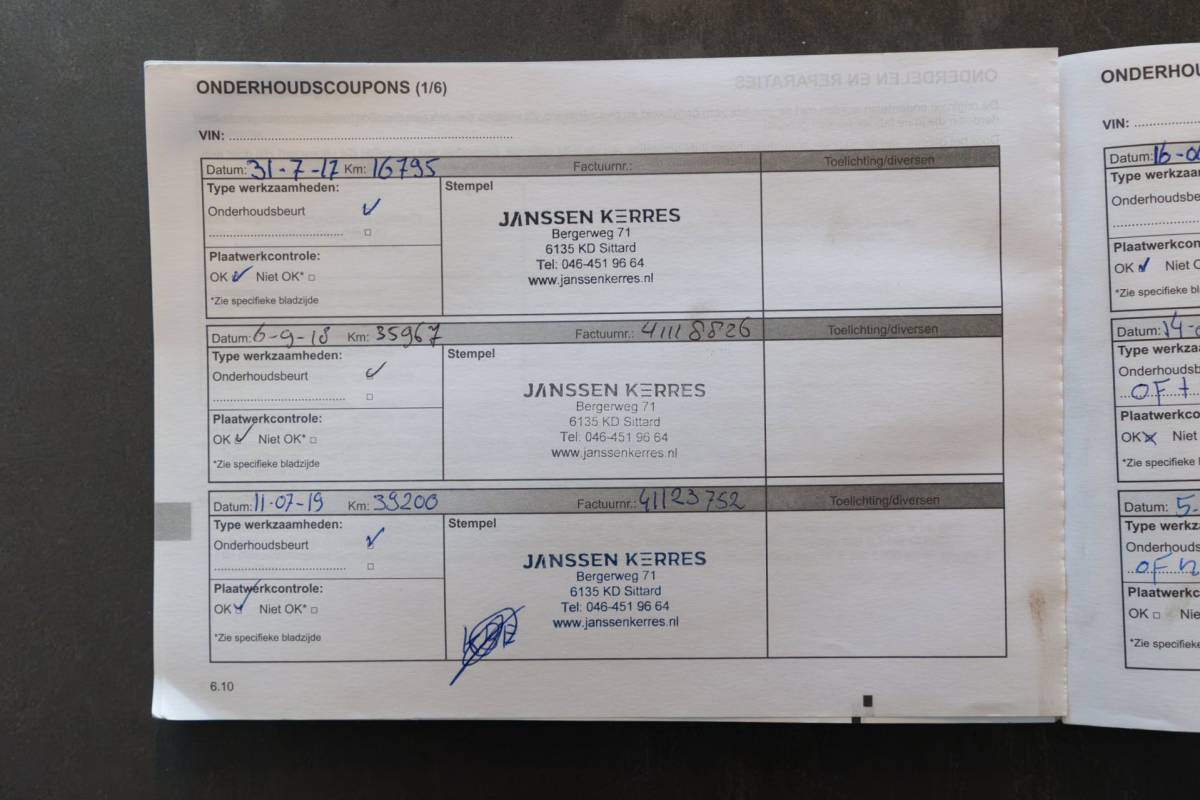 ONDERHOUDSCOUPONS (1/6)
VIN:
Datum: 31-7-17 Km: 16795 Factuurnr.: Toelichting/diversen
Type werkzaamheden: Stempel
Onderhoudsbeurt
JANSSEN KERRES
Bergerweg 71
6135 KD Sittard
Tel: 046-451 96 64
www.janssenkerres.nl
Plaatwerkcontrole:
OK Niet OK*
*Zie specifieke bladzijde
Datum: 6-9-18 Km: 35967 Factuurnr.: 41118826 Toelichting/diversen
Type werkzaamheden: Stempel
Onderhoudsbeurt
JANSSEN KERRES
Bergerweg 71
6135 KD Sittard
Tel: 046-451 96 64
www.janssenkerres.nl
Plaatwerkcontrole:
OK Niet OK*
*Zie specifieke bladzijde
Datum: 11-07-19 Km: 39200 Factuurnr.: 41123752 Toelichting/diversen
Type werkzaamheden: Stempel
Onderhoudsbeurt
JANSSEN KERRES
Bergerweg 71
6135 KD Sittard
Tel: 046-451 96 64
www.janssenkerres.nl
Plaatwerkcontrole:
OK Niet OK*
*Zie specifieke bladzijde
6.10
ONDERHOU
VIN:
Datum: 16-0
Type werkzaa
Onderhoudsbe
Plaatwerkcon
OK Niet O
*Zie specifieke bl
Datum: 14-
Type werkza
Onderhoudsb
OF
Plaatwerkco
OK Niet
*Zie specifieke
Datum: 5-
Type werkz
Onderhouds
OF
Plaatwerkc
OK Nie
*Zie specifieke